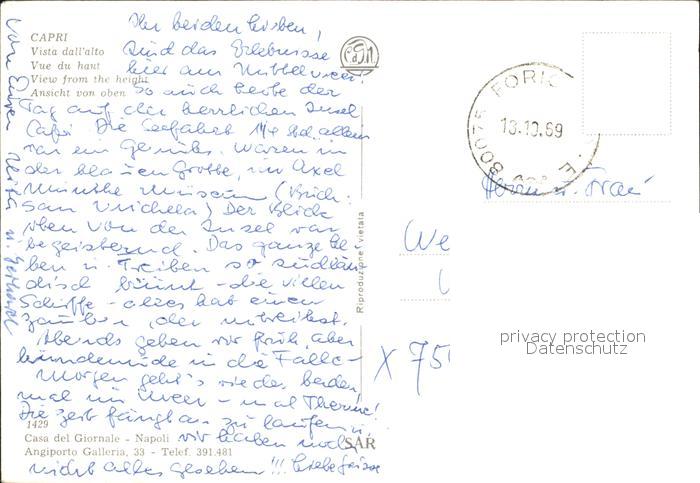 CAPRI
Vista dall'alto
Vue du haut
View from the height
Ansicht von oben
Ihr beiden Lieben!
Sind das Erlebnisse
hier am Mittelmeer.
So auch heute der
Tag auf der herrlichen Insel
Capri. Die Seefahrt 1¼ Std. allein
war ein Genuss. Waren in
der blauen Grotte, im Axel
Munthe Museum (Buch:
San Michele) Der Blick
oben von der Insel war
begeisternd. Das ganze Le-
ben u. Treiben so südlän-
disch bunt - die vielen
Schiffe - alles hat einen
Zauber, der mitreißt.
Abends gehen wir früh, aber
hundemüde in die Falle -
Morgen geht's wieder baden,
mal im Meer - mal Therme!
Die Zeit fängt an zu laufen u.
wir haben noch
nicht alles gesehen!!! Liebe Grüsse
von Eurer
u. Gerhard
1429
Casa del Giornale - Napoli
Angiporto Galleria, 33 - Telef. 391.481
SAR
Riproduzione vietata
80075 FORIO
13.10.69
Herrn u. Frau
We
X 75
privacy protection
Datenschutz